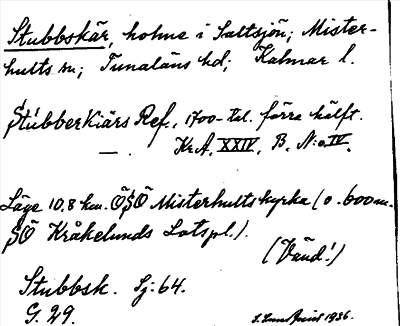 Stubbskär, holme i Saltsjön; Mister-
hults sn; Tunaläns hd; Kalmar l.
StubberKiärs Ref., 1700-tal. förra hälft.
—. Kr.A. XXIV, B. N:o IV.
Läge 10.8 km. ÖSÖ Misterhults kyrka (o. 600 m.
SÖ Kråkelunds Lotspl.).
(Vänd!)
Stubbsk. Sj: 64.
G. 29. 1936.